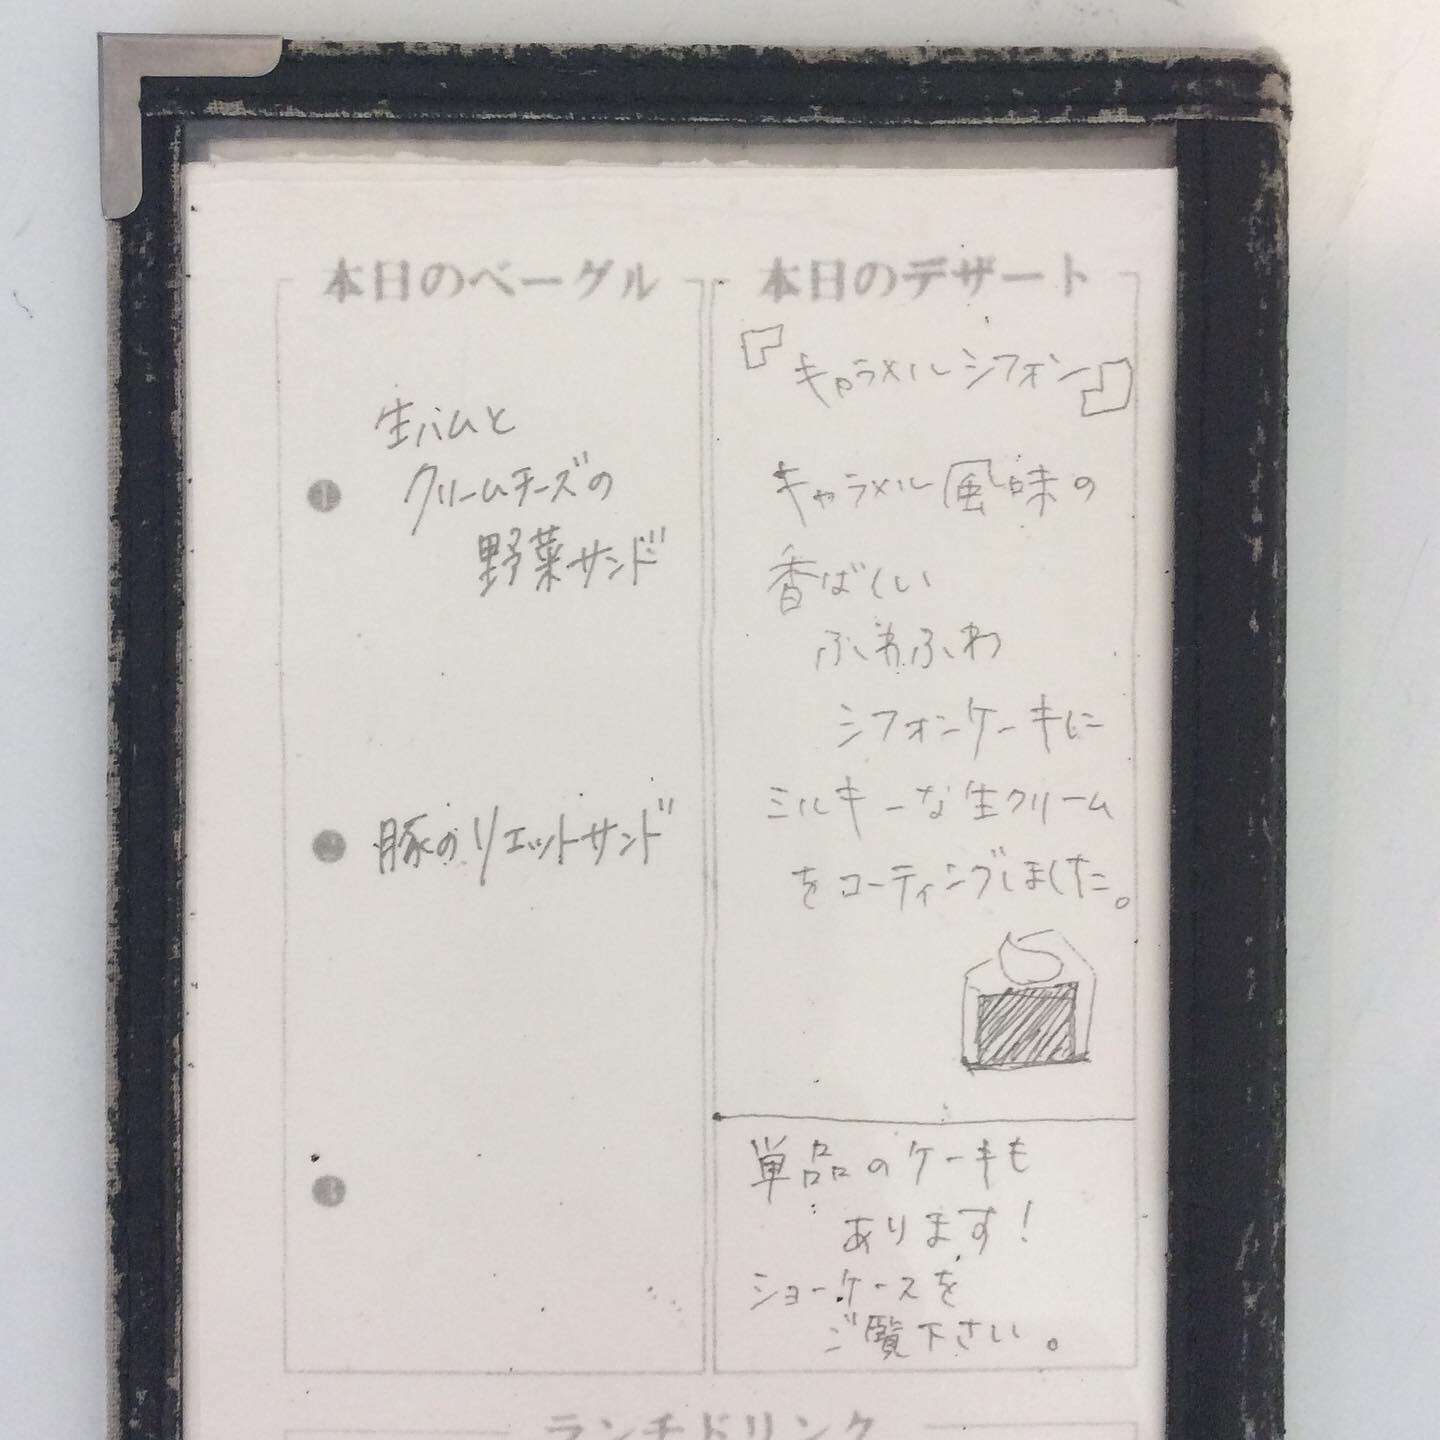 本日のベーグル
❶
生ハムと
クリームチーズの
野菜サンド
❷ 豚のリエットサンド
❸
本日のデザート
『キャラメルシフォン』
キャラメル風味の
香ばしい
ふわふわ
シフォンケーキに
ミルキーな生クリーム
をコーティングしました。
単品のケーキも
あります！
ショーケースを
ご覧下さい。
ランチドリンク